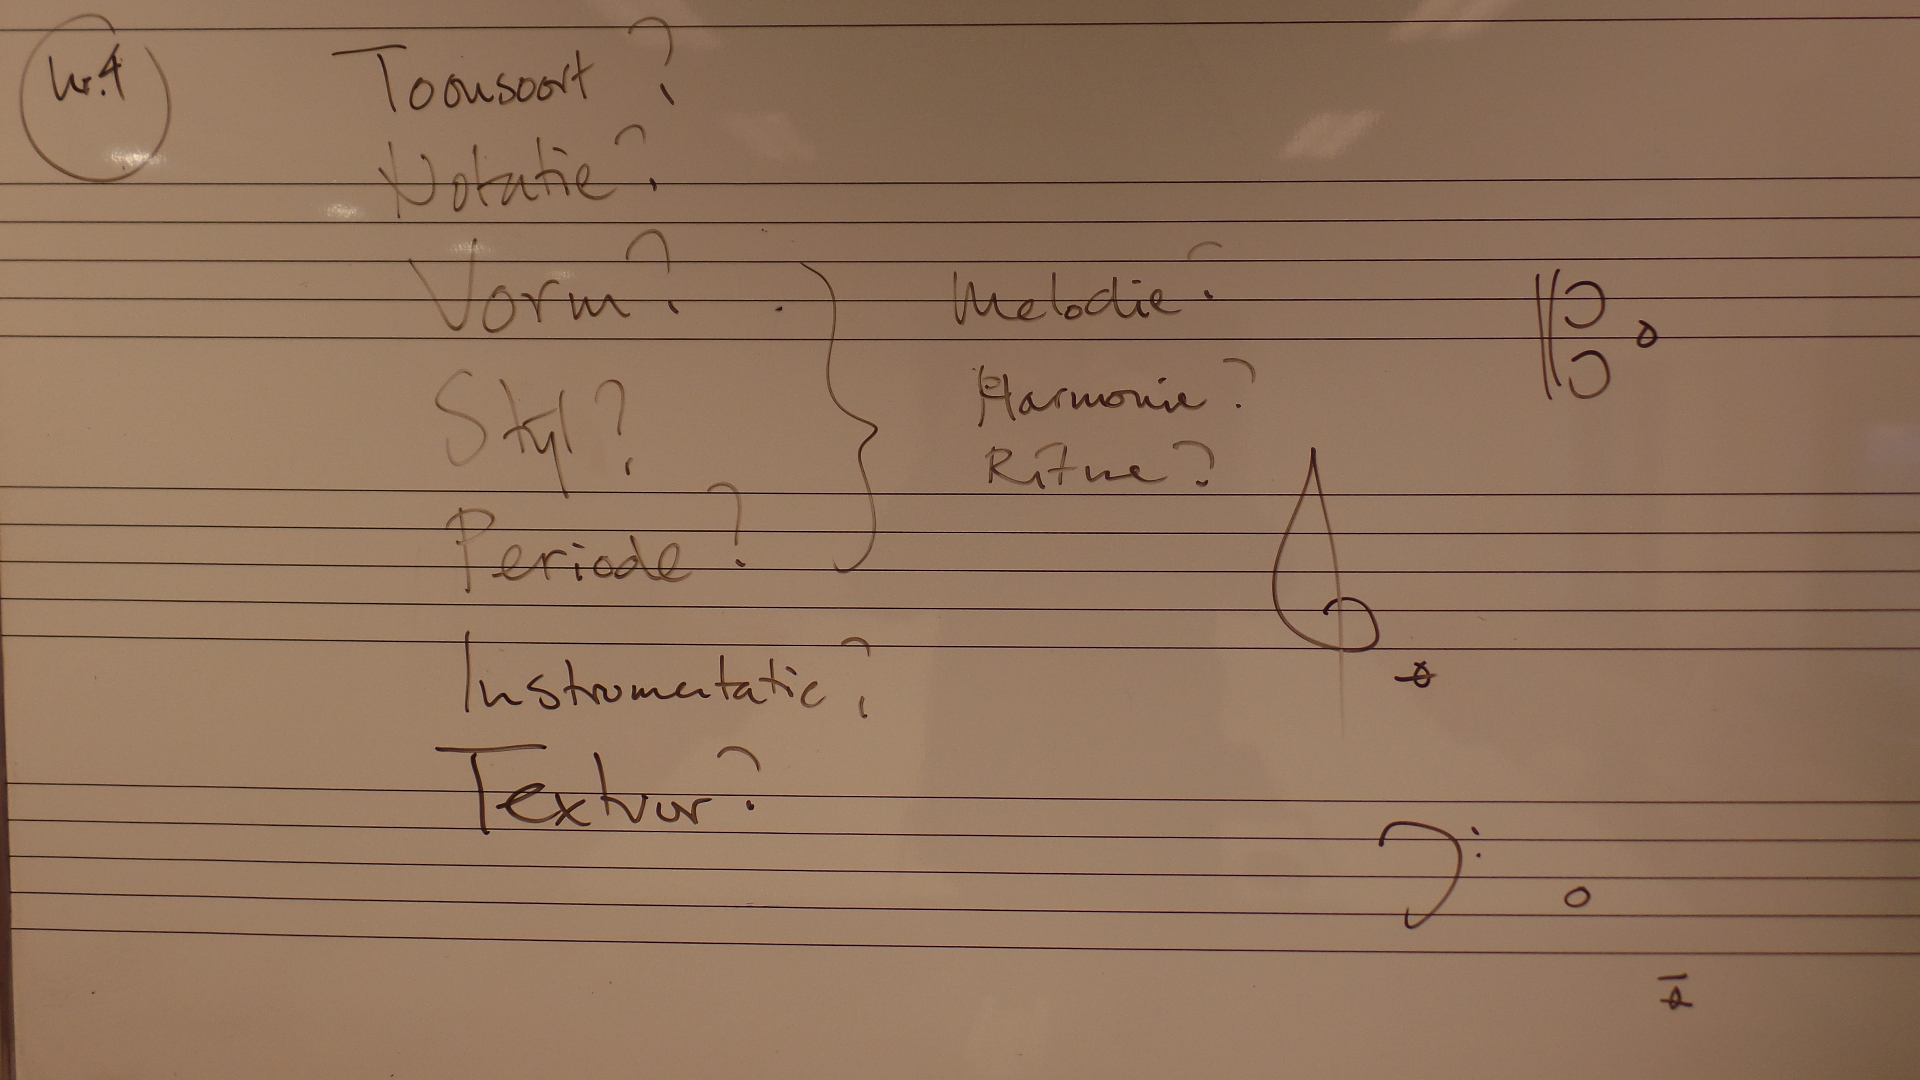 Nr. 4
Toonsoort?
Notatie?
Vorm?
Styl?
Periode?
Instrumentatie?
Textuur?
Melodie?
Harmonie?
Ritme?